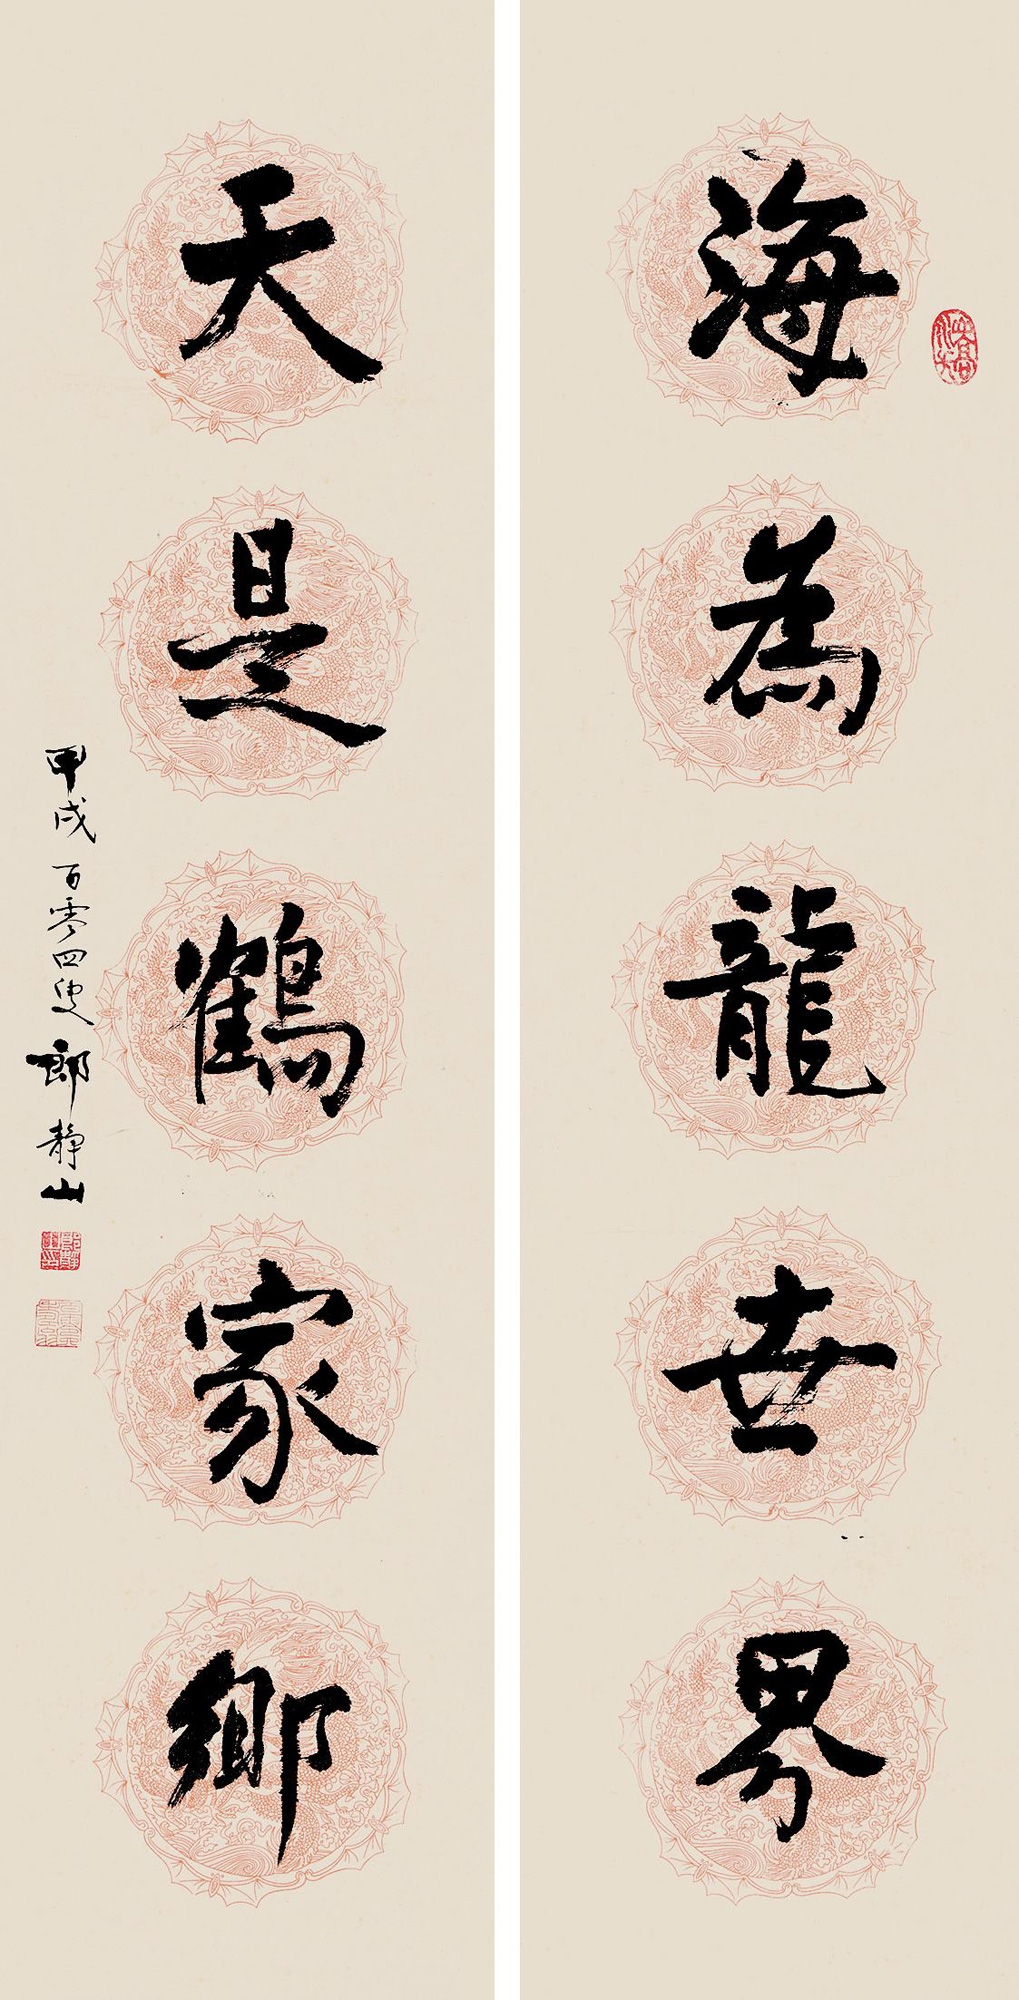 海為龍世界
天是鶴家鄉
甲戌百零四叟郎靜山